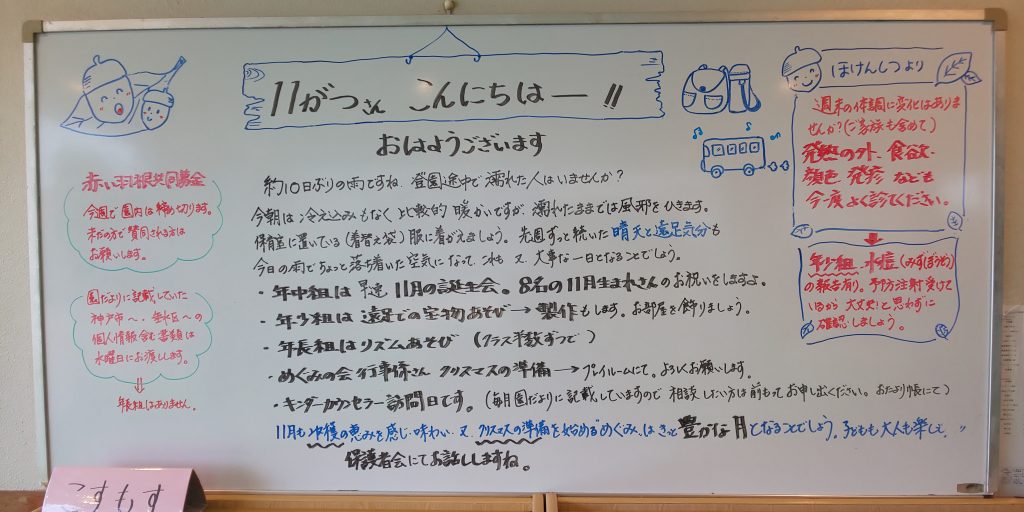 11がつさん こんにちはー!!
おはようございます
約10日ぶりの雨ですね。登園途中で濡れた人はいませんか?
今朝は冷え込みもなく比較的暖かいですが、濡れたままでは風邪をひきます。
保育室に置いている(着替え袋)服に着がえましょう。先週ずっと続いた晴天と遠足気分も
今日の雨でちょっと落ち着いた空気になって、これも又、大事な一日となることでしょう。
・年中組は早速11月の誕生会。8名の11月生まれさんのお祝いをしますよ。
・年少組は遠足での宝物あそび→製作もします。お部屋を飾りましょう。
・年長組はリズムあそび(クラス半数ずつで)
・めぐみの会 行事係さん クリスマスの準備→プレイルームにて。よろしくお願いします。
・キンダーカウンセラー訪問日です。(毎月園だよりに記載していますので相談したい方は前もってお申し出ください。おたより帳にて)
11月も収穫の恵みを感じ・味わい、又、クリスマスの準備を始める"めぐみ"はきっと豊かな月となることでしょう。子どもも大人も楽しく。"
保護者会にてお話ししますね。
赤い羽根共同募金
今週で園内は締め切ります。
まだの方で賛同される方は
お願いします。
園だよりに記載していた
神戸市へ・垂水区への
個人情報含む書類は
水曜日にお渡しします。
⇩
年長組はありません。
ほけんしつより
週末の体調に変化はありま
せんか?(ご家族も含めて)
発熱の外、食欲・
顔色、発疹なども
今一度よく診てください。
年少組、水痘(みずぼうそう)
の報告有り。予防注射受けて
いるから大丈夫!と思わずに
確認しましょう。
こすもす